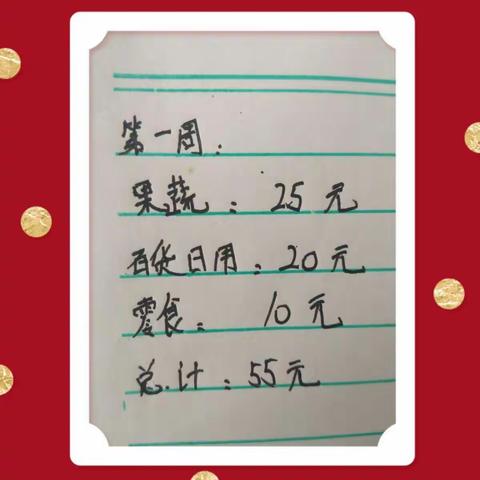 第一周：
果蔬：25元
百货日用：20元
零食：10元
总计：55元